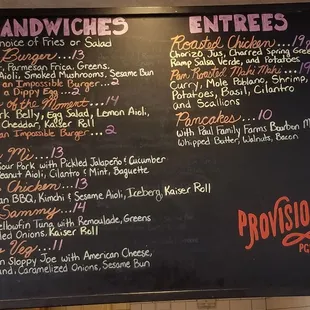 ANDWICHES
hoice of Fries or Salad
Burger...13
Parmesan Frica, Greens,
Aioli, Smoked Mushrooms, Sesame Bun
an Impossible Burger...2
a Dippy Egg...2
of the Moment...14
rk Belly, Egg Salad, Lemon Aioli,
Cheddar, Kaiser Roll
an Impossible Burger...2
Mi...13
Sour Pork with Pickled Jalapeño & Cucumber
Peanut Aioli, Cilantro & Mint, Baguette
Chicken...13
an BBQ, Kimchi & Sesame Aioli, Iceberg, Kaiser Roll
Sammy...14
ellowfin Tuna with Remoulade, Greens
led Onions, Kaiser Roll
Veg...11
n Sloppy Joe with American Cheese,
und, Caramelized Onions, Sesame Bun
ENTREES
Roasted Chicken...19
Chorizo Jus, Charred Spring Gree
Ramp Salsa Verde, and Potatoes
Pan Roasted Mahi Mahi...19
Curry, Mole Poblano, Shrimp,
Potatoes, Basil, Cilantro
and Scallions
Pancakes...10
with Paul Family Farms Bourbon M
Whipped Butter, Walnuts, Bacon
PROVISION
PG